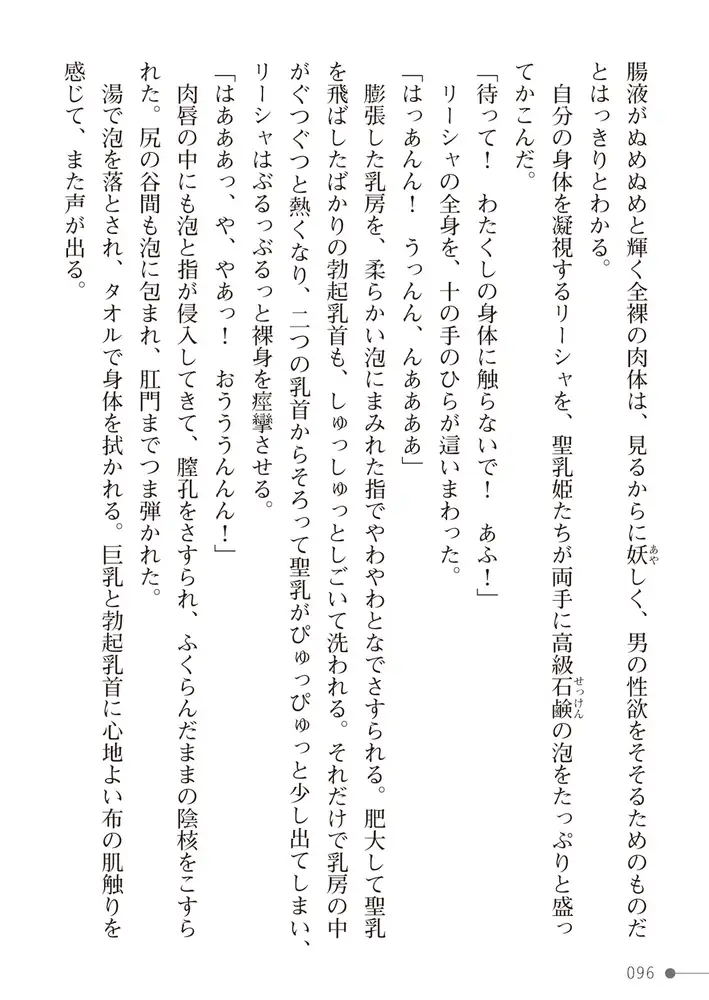 腸液がぬめぬめと輝く全裸の肉体は、見るからに妖しく、男の性欲をそそるためのものだ
とはっきりとわかる。
自分の身体を凝視するリーシャを、聖乳姫たちが両手に高級石鹸の泡をたっぷりと盛っ
てかこんだ。
「待って！　わたくしの身体に触らないで！　あふ！」
リーシャの全身を、十の手のひらが這いまわった。
「はっあんん！　うっんん、んああああ」
膨張した乳房を、柔らかい泡にまみれた指でやわやわとなでさすられる。肥大して聖乳
を飛ばしたばかりの勃起乳首も、しゅっしゅっとしごいて洗われる。それだけで乳房の中
がぐつぐつと熱くなり、二つの乳首からそろって聖乳がぴゅっぴゅっと少し出てしまい、
リーシャはぶるっぶるっと裸身を痙攣させる。
「はあああっ、や、やあっ！　おうううんんん！」
肉唇の中にも泡と指が侵入してきて、膣孔をさすられ、ふくらんだままの陰核をこすら
れた。尻の谷間も泡に包まれ、肛門までつま弾かれた。
湯で泡を落とされ、タオルで身体を拭かれる。巨乳と勃起乳首に心地よい布の肌触りを
感じて、また声が出る。
096